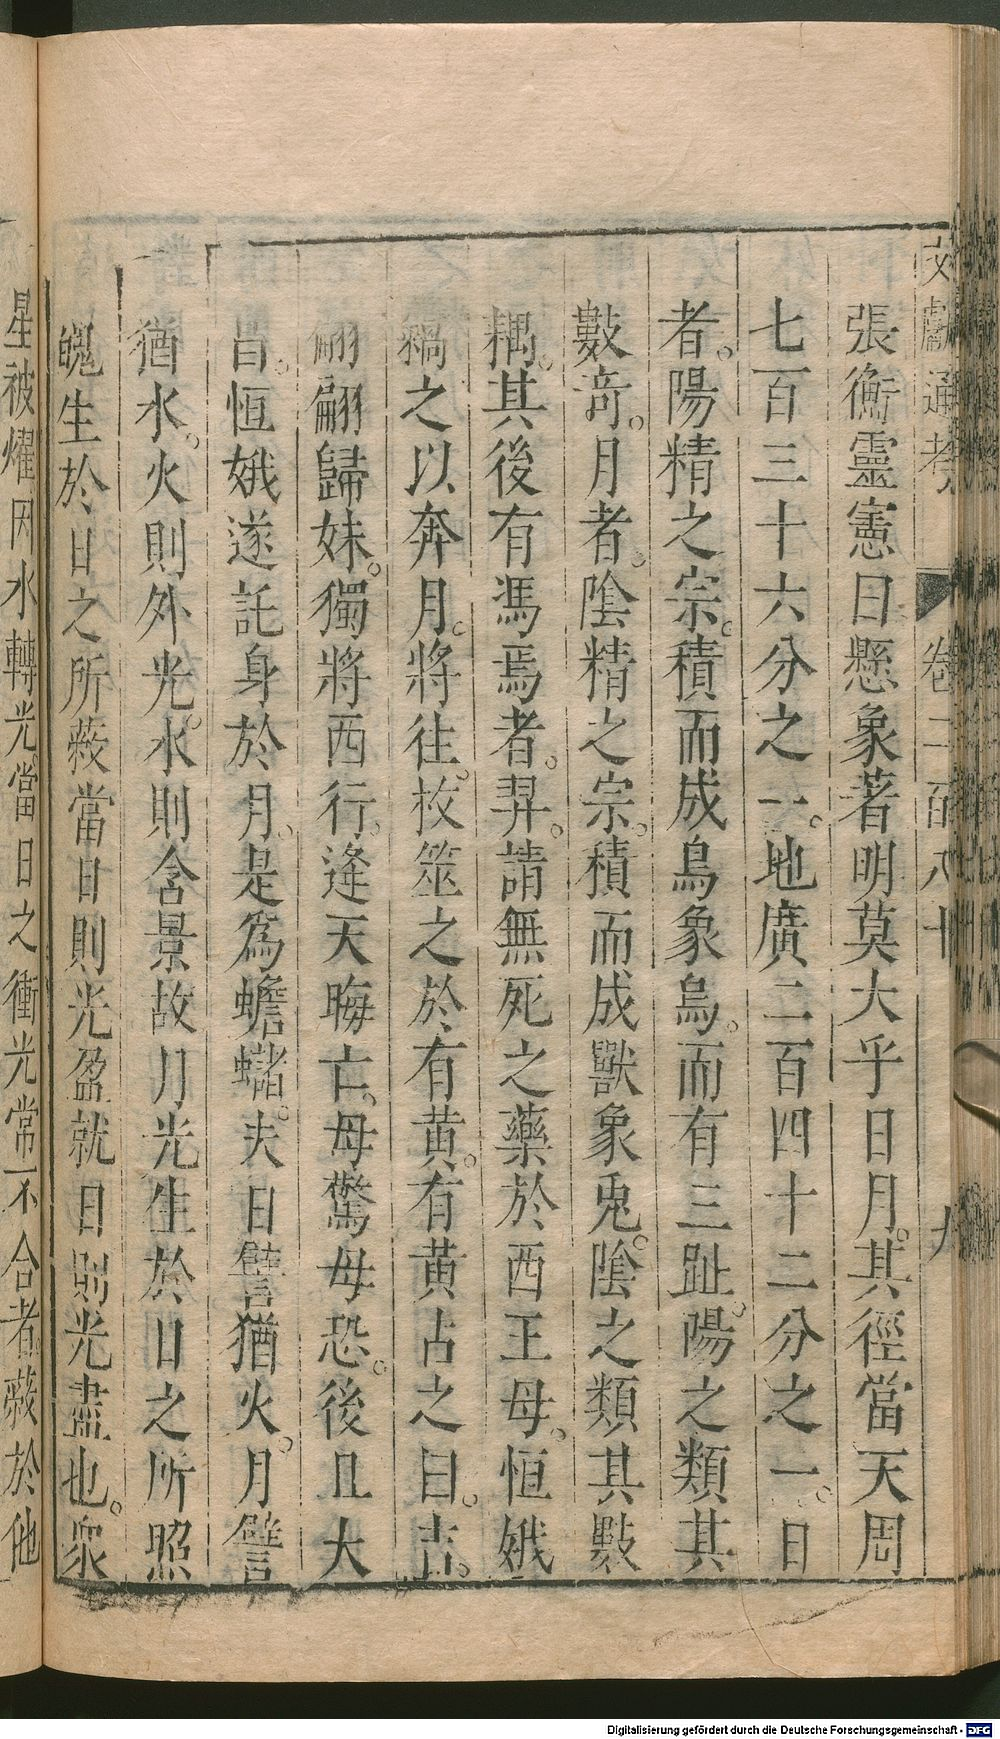 文獻通考 卷二百八十 九
張衡靈憲曰懸象著明莫大乎日月。其徑當天周
七百三十六分之一。地廣二百四十二分之一。日
者。陽精之宗。積而成鳥象烏。而有三趾。陽之類其
數奇。月者。陰精之宗。積而成獸象兎。陰之類其數
耦。其後有馮焉者。羿。請無死之藥於西王母。恒娥
竊之以奔月。將往。枚筮之於有黃。有黃占之曰。吉。
翩翩歸妹。獨將西行。逢天晦亡。母驚母恐。後且大
昌。恒娥遂託身於月。是爲蟾蠩。夫日譬猶火。月譬
猶水。火則外光。水則含景故月光生於日之所照
魄生於日之所蔽當日則光盈就日則光盡也。衆
星被燿因水轉光。當日之衝光常不合者。蔽於他
Digitalisierung gefördert durch die Deutsche Forschungsgemeinschaft - DFG